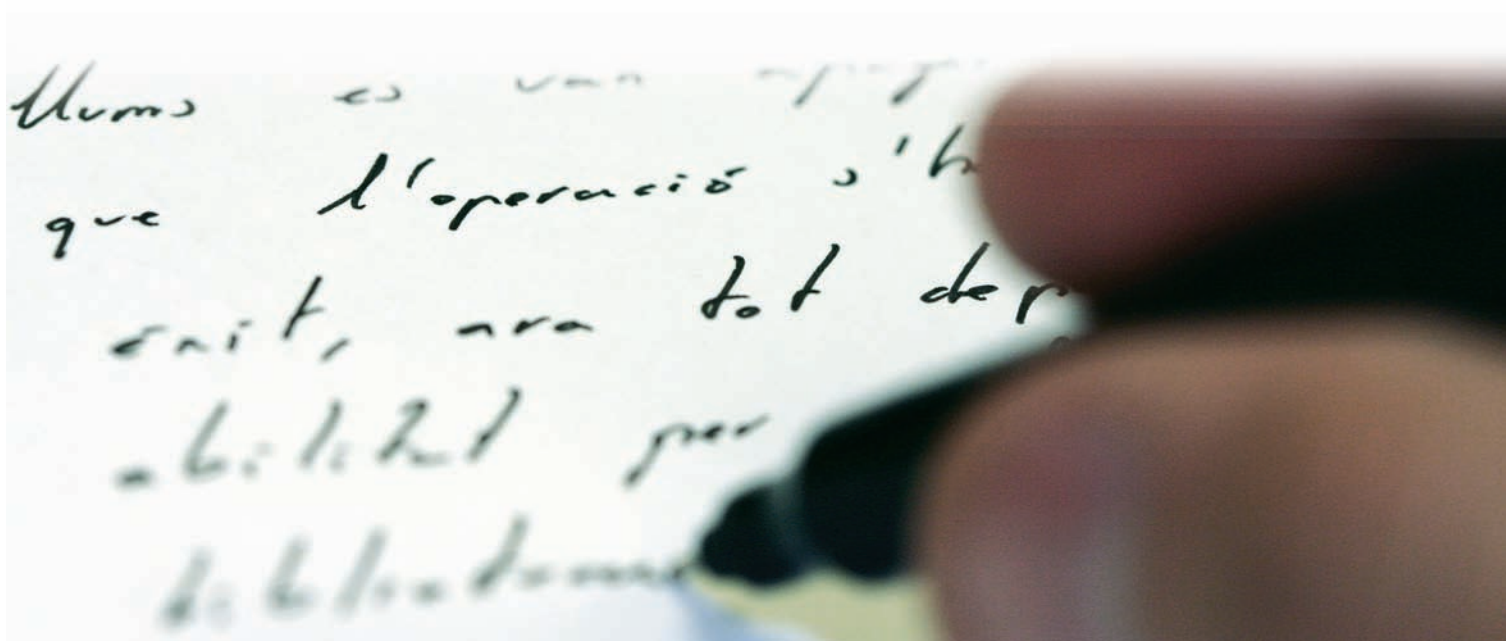 llums es van
que l'operació s'h
èxit, ara tot dep
abilitat per